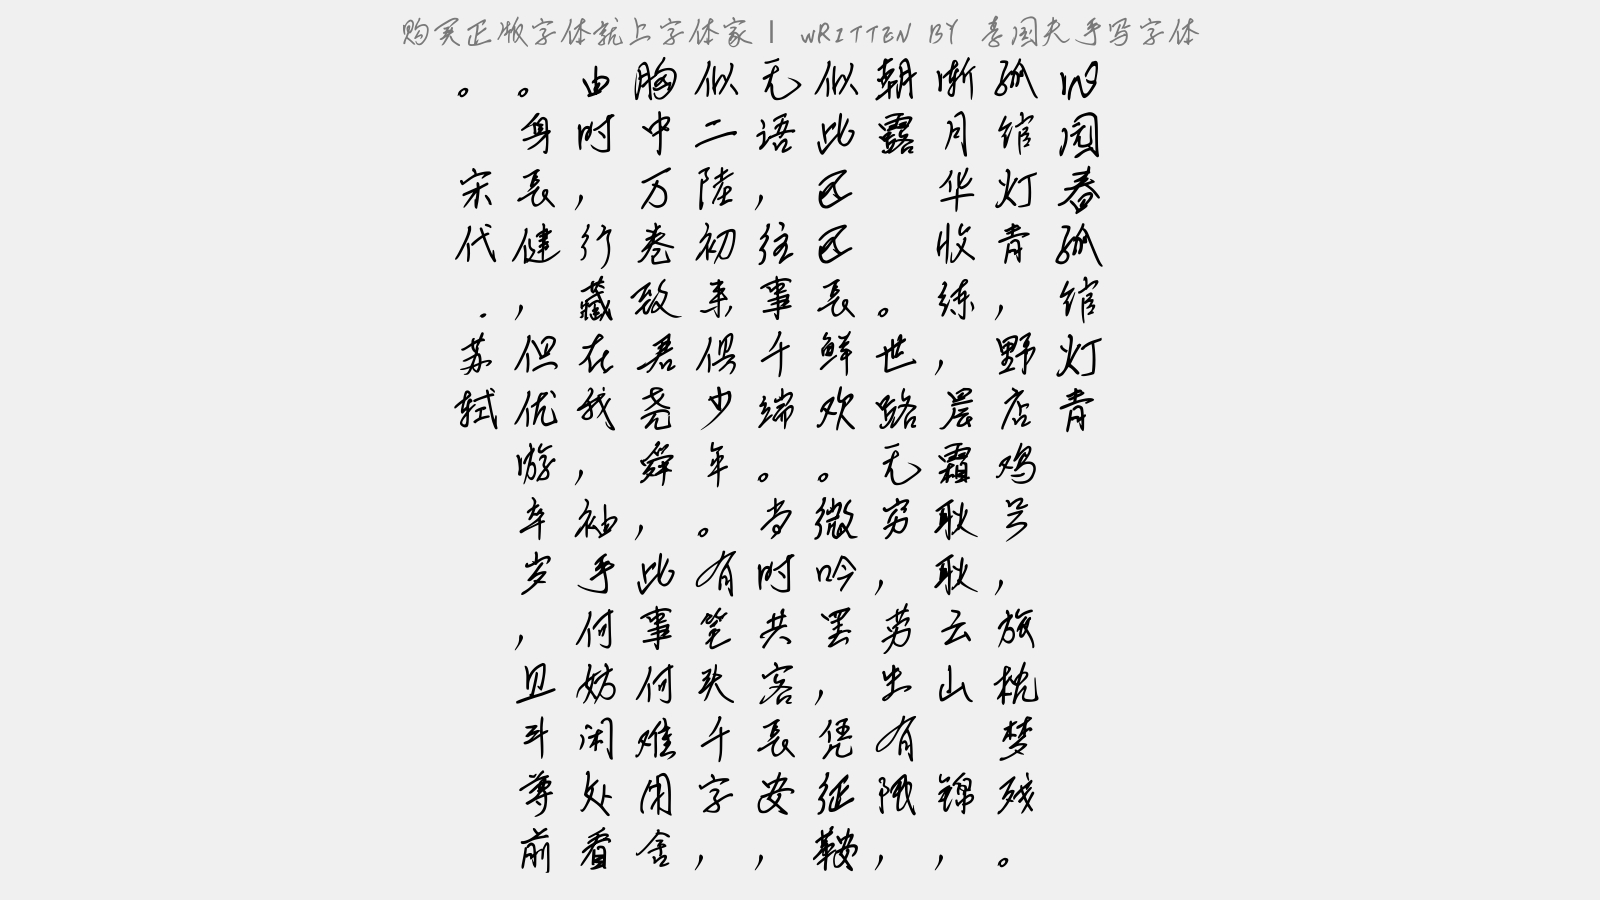 购买正版字体就上字体家 | WRITTEN BY 李国夫手写字体
沁园春孤馆灯青
孤馆灯青，野店鸡号，旅枕梦残。
渐月华收练，晨霜耿耿云山 锦，
朝露 。世路无穷，劳生有限，
似此区区长鲜欢。微吟罢，凭征鞍
无语，往事千端。当时共客长安，
似二陆初来俱少年。有笔头千字，
胸中万卷致君尧舜，此事何难用舍
由时，行藏在我，袖手何妨闲处看
。身长健，但优游卒岁，且斗尊前
。 宋代.苏轼